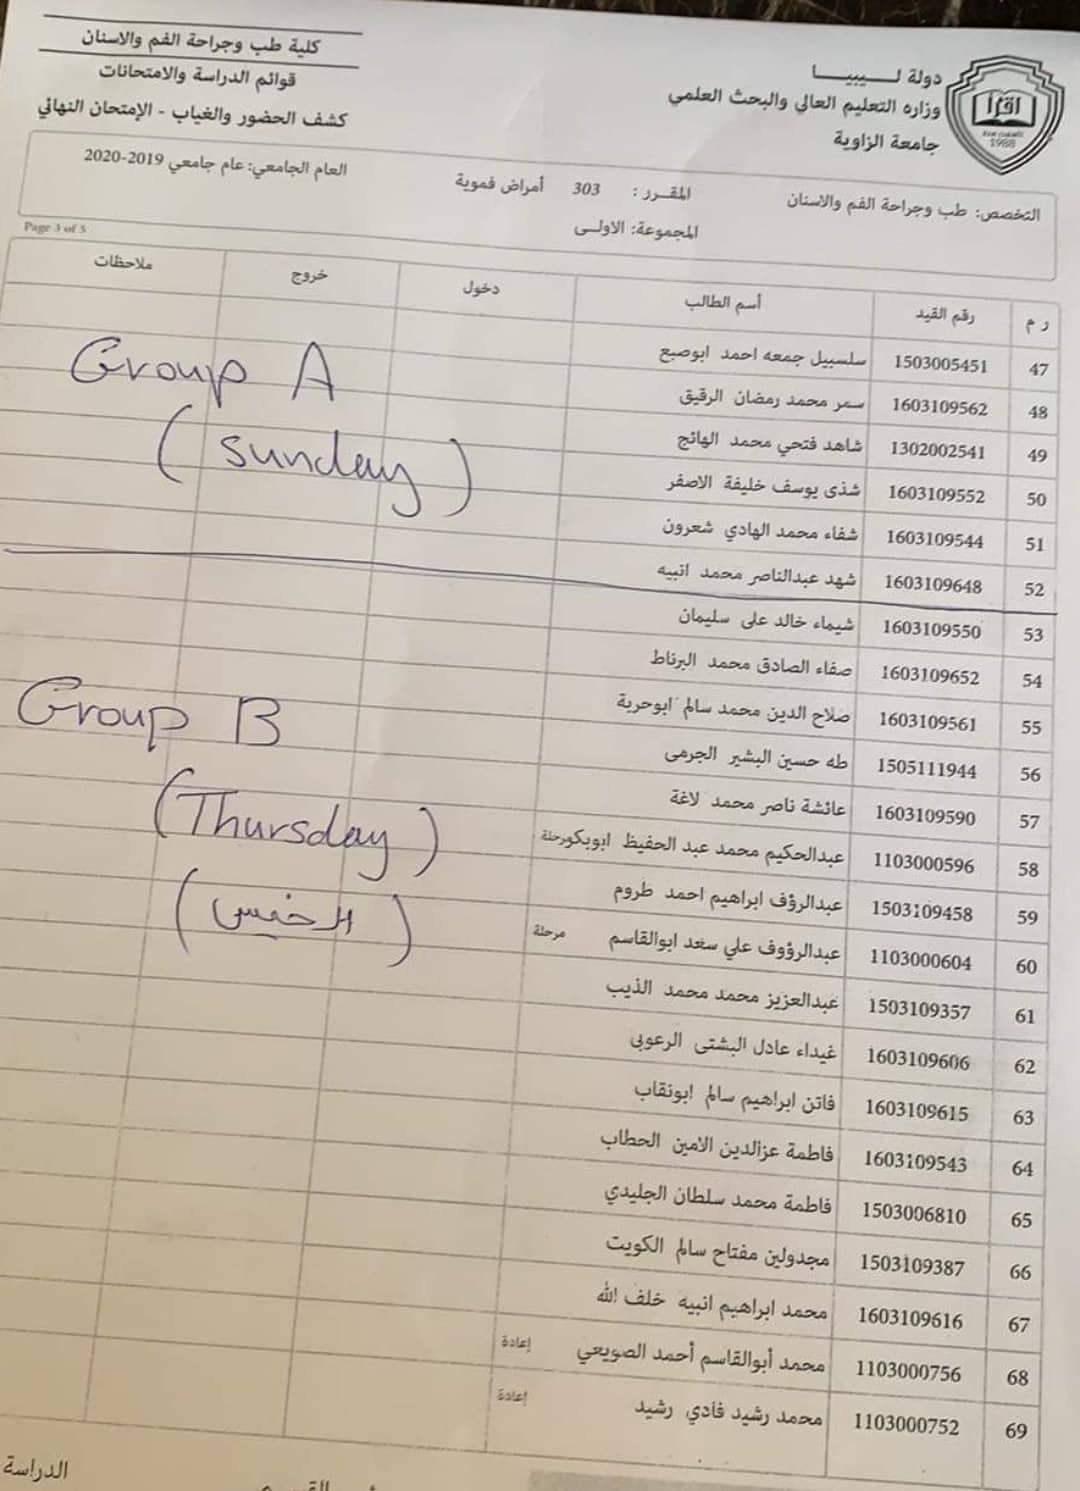 كلية طب وجراحة الفم والاسنان
قوائم الدراسة والامتحانات
كشف الحضور والغياب - الإمتحان النهائي
دولة لـــيبيـــا
وزاره التعليم العالي والبحث العلمي
جامعة الزاوية
اقرأ
1988
التخصص: طب وجراحة الفم والاسنان المقـرر : 303 أمراض فموية العام الجامعي: عام جامعي 2019-2020
المجموعة: الاولـى
Page 3 of 5
ر م رقم القيد أسم الطالب دخول خروج ملاحظات
47 1503005451 سلسبيل جمعه احمد ابوصبع
48 1603109562 سمر محمد رمضان الرقيق
49 1302002541 شاهد فتحي محمد الهائج
50 1603109552 شذى يوسف خليفة الاصفر
51 1603109544 شفاء محمد الهادي شعرون
52 1603109648 شهد عبدالناصر محمد انبيه
53 1603109550 شيماء خالد على سليمان
54 1603109652 صفاء الصادق محمد البرناط
55 1603109561 صلاح الدين محمد سالم ابوحربة
56 1505111944 طه حسين البشير الجرمى
57 1603109590 عائشة ناصر محمد لاغة
58 1103000596 عبدالحكيم محمد عبد الحفيظ ابوبكر مرحلة
59 1503109458 عبدالرؤف ابراهيم احمد طروم
60 1103000604 عبدالرؤوف علي سعد ابوالقاسم مرحلة
61 1503109357 عبدالعزيز محمد محمد الذيب
62 1603109606 غيداء عادل البشتى الرعوبى
63 1603109615 فاتن ابراهيم سالم ابونقاب
64 1603109543 فاطمة عزالدين الامين الحطاب
65 1503006810 فاطمة محمد سلطان الجليدي
66 1503109387 مجدولين مفتاح سالم الكويت
67 1603109616 محمد ابراهيم انبيه خلف الله
68 1103000756 محمد أبوالقاسم أحمد الصويعي إعادة
69 1103000752 محمد رشيد فادي رشيد إعادة
Group A
(Sunday)
Group B
(Thursday)
(الخميس)
الدراسة